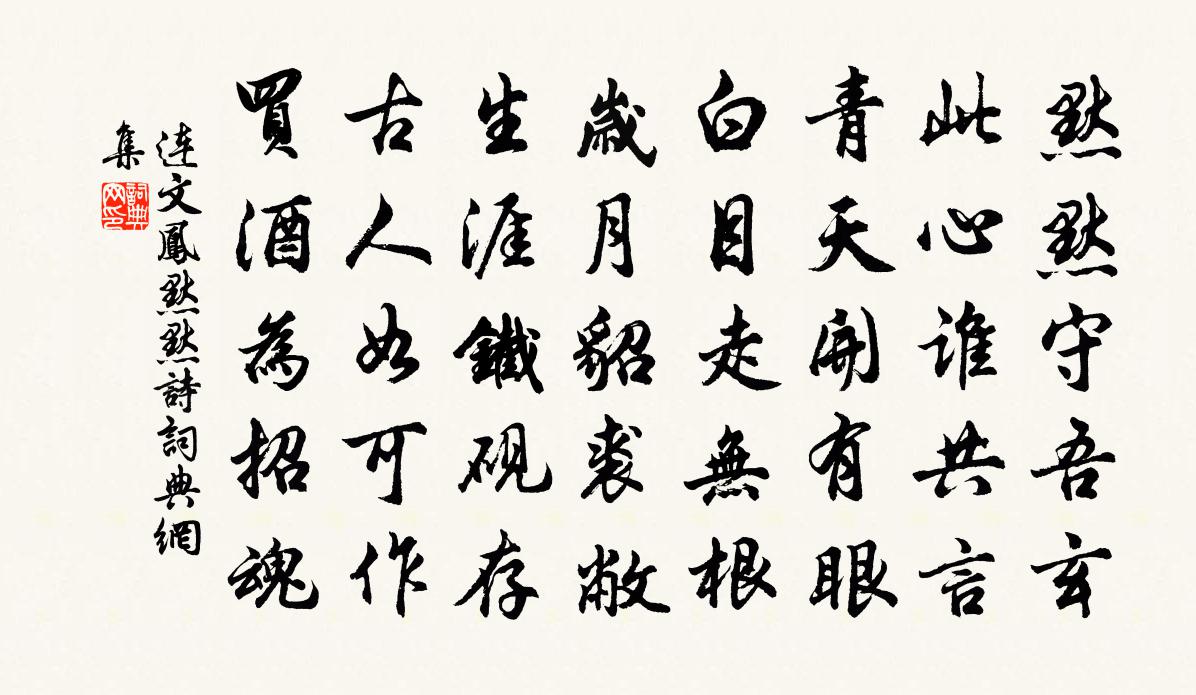 默默守吾玄
此心誰共言
青天開有眼
白日走無根
歲月貂裘敝
生涯鐵硯存
古人如可作
買酒為招魂
连文鳳默默詩詞典網
集
詞典
网印